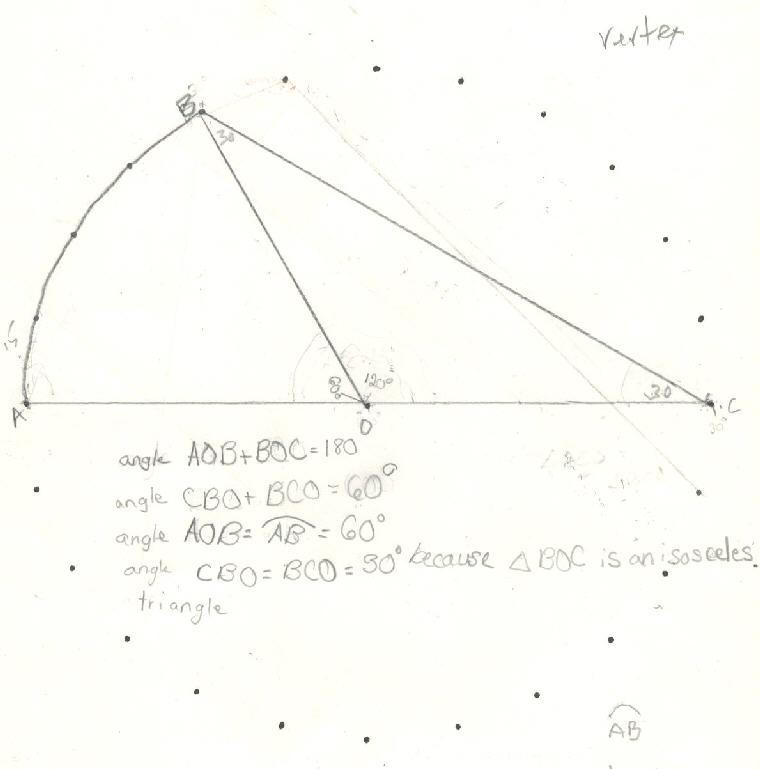 vertex
B
30
60
120°
30
A
O
C
30°
angle AOB+BOC=180
angle CBO+BCO=60°
angle AOB= AB =60°
angle CBO=BCO=30° because △BOC is an isosceles
triangle
AB